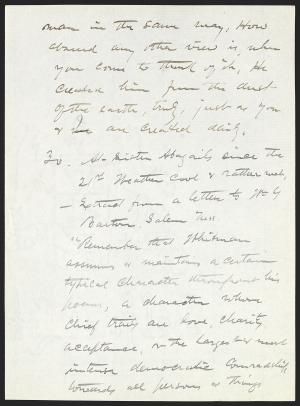 man in the same way, How
absurd any other view is when
you come to think of it, He
created him from the dust
of the earth, truly, just as you
& I are created daily.
30. At Sister Abigails since the
21st Weather cool & rather wet,
— Extract from a letter to
Barton, Salem
"Remember that Whitman
assumes & maintains a certain
typical character throughout his
poems, a character whose
chief traits are love, charity
acceptance, & the largest & most
intense democratic comradeship
towards all persons & things